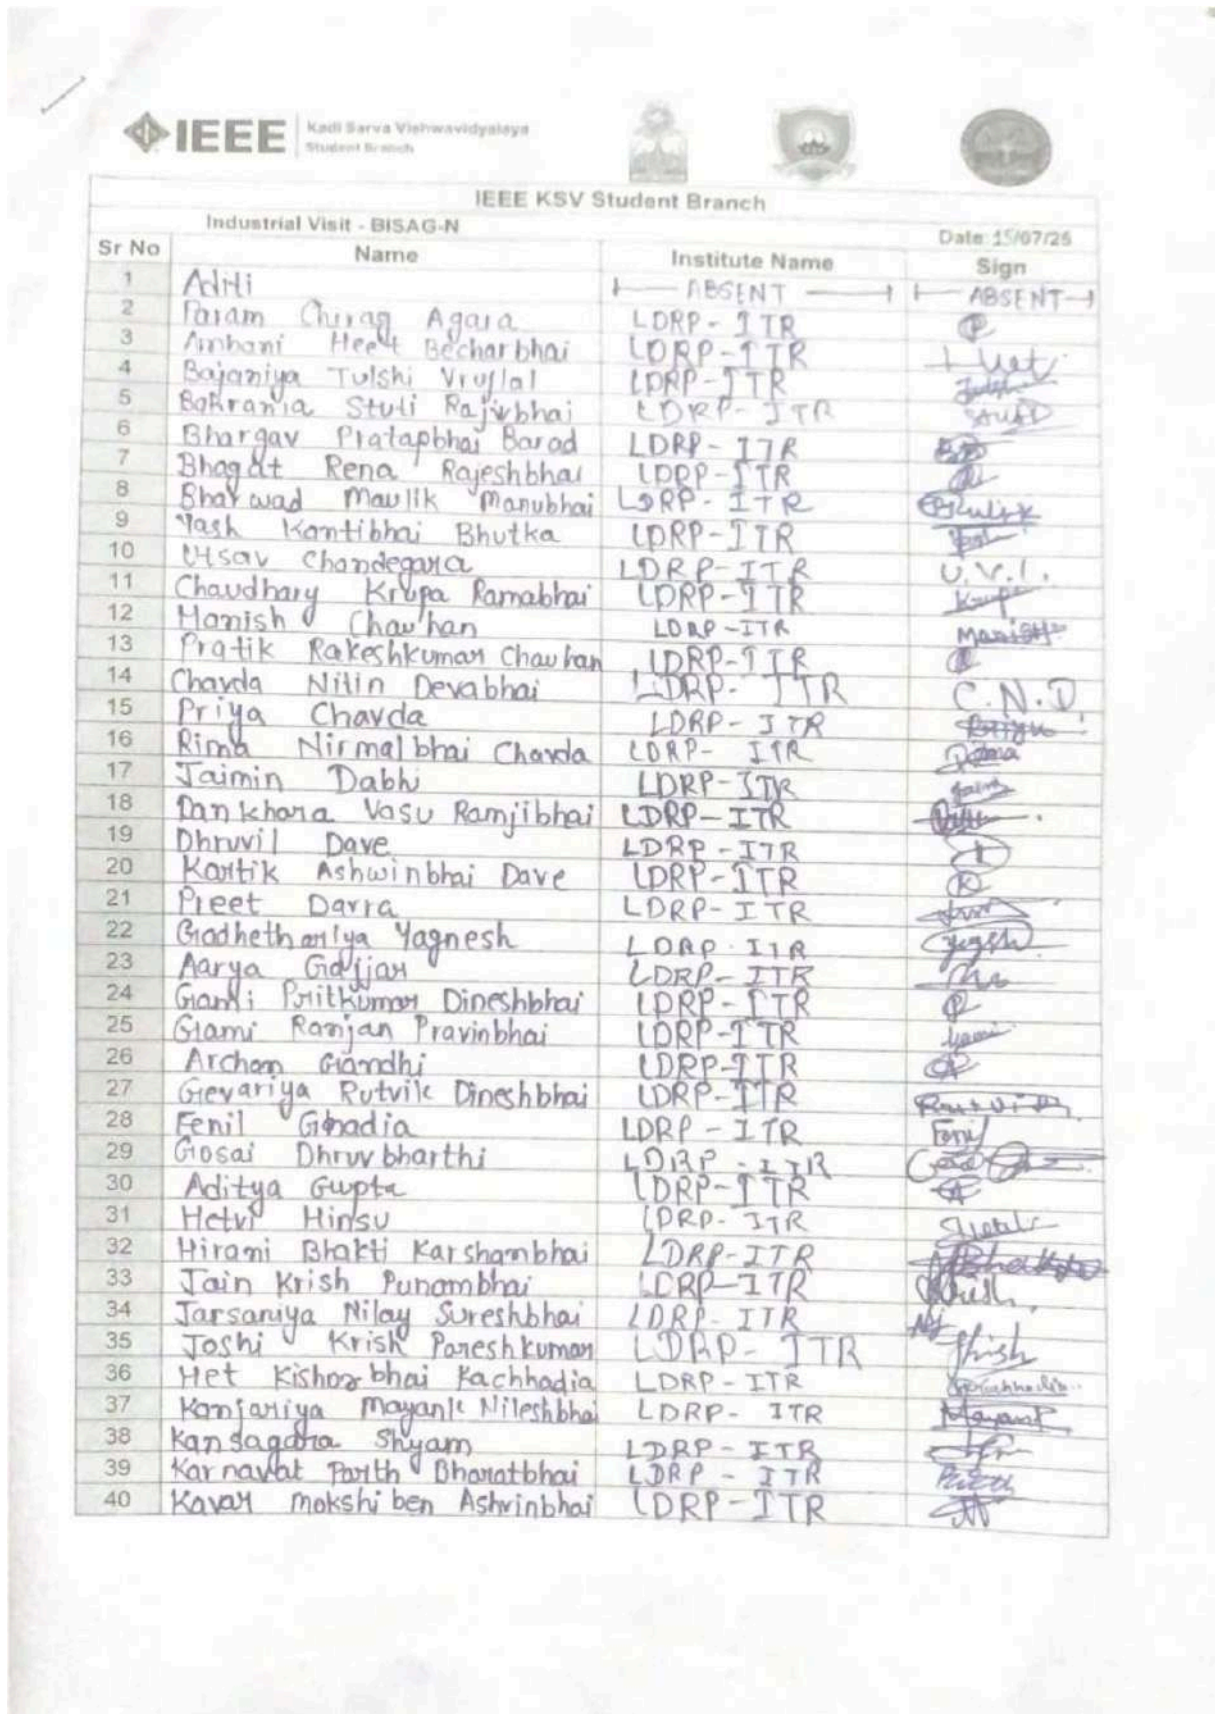 IEEE Kadi Sarva Vishwavidyalaya
Student Branch
IEEE KSV Student Branch
Industrial Visit - BISAG-N Date: 15/07/25
Sr No Name Institute Name Sign
1 Aditi ABSENT ABSENT
2 Param Chirag Agara LDRP-ITR
3 Ambani Heet Becharbhai LDRP-ITR Heet
4 Bajaniya Tulshi Vrujlal LDRP-ITR
5 Bakrania Stuti Rajivbhai LDRP-ITR
6 Bhargav Pratapbhai Barad LDRP-ITR
7 Bhagat Rena Rajeshbhai LDRP-ITR
8 Bharwad Maulik Manubhai LDRP-ITR
9 Yash Kantibhai Bhutka LDRP-ITR
10 Utsav Chandegara LDRP-ITR U.V.I.
11 Chaudhary Krupa Ramabhai LDRP-ITR Krupa
12 Manish Chauhan LDRP-ITR Manish
13 Pratik Rakeshkumar Chauhan LDRP-ITR
14 Chavda Nitin Devabhai LDRP-ITR C.N.D.
15 Priya Chavda LDRP-ITR Priya
16 Rima Nirmalbhai Chavda LDRP-ITR
17 Jaimin Dabhi LDRP-ITR
18 Dankhara Vasu Ramjibhai LDRP-ITR
19 Dhruvil Dave LDRP-ITR
20 Kartik Ashwinbhai Dave LDRP-ITR K
21 Preet Davra LDRP-ITR
22 Gadhethariya Yagnesh LDRP-ITR
23 Aarya Gajjar LDRP-ITR
24 Gami Pritkumar Dineshbhai LDRP-ITR
25 Gami Ranjan Pravinbhai LDRP-ITR
26 Archan Gandhi LDRP-ITR
27 Gevariya Rutvik Dineshbhai LDRP-ITR
28 Fenil Ginadia LDRP-ITR Fenil
29 Gosai Dhruvbharthi LDRP-ITR
30 Aditya Gupta LDRP-ITR
31 Hetvi Hinsu LDRP-ITR
32 Hirani Bhakti Karshambhai LDRP-ITR Bhakti
33 Jain Krish Punambhai LDRP-ITR
34 Jarsaniya Nilay Sureshbhai LDRP-ITR
35 Joshi Krish Pareshkumar LDRP-ITR
36 Het Kishorbhai Kachhadia LDRP-ITR
37 Kanjariya Mayank Nileshbhai LDRP-ITR Mayank
38 Kansagara Shyam LDRP-ITR
39 Karnavat Parth Bharatbhai LDRP-ITR
40 Kavar Mokshiben Ashvinbhai LDRP-ITR